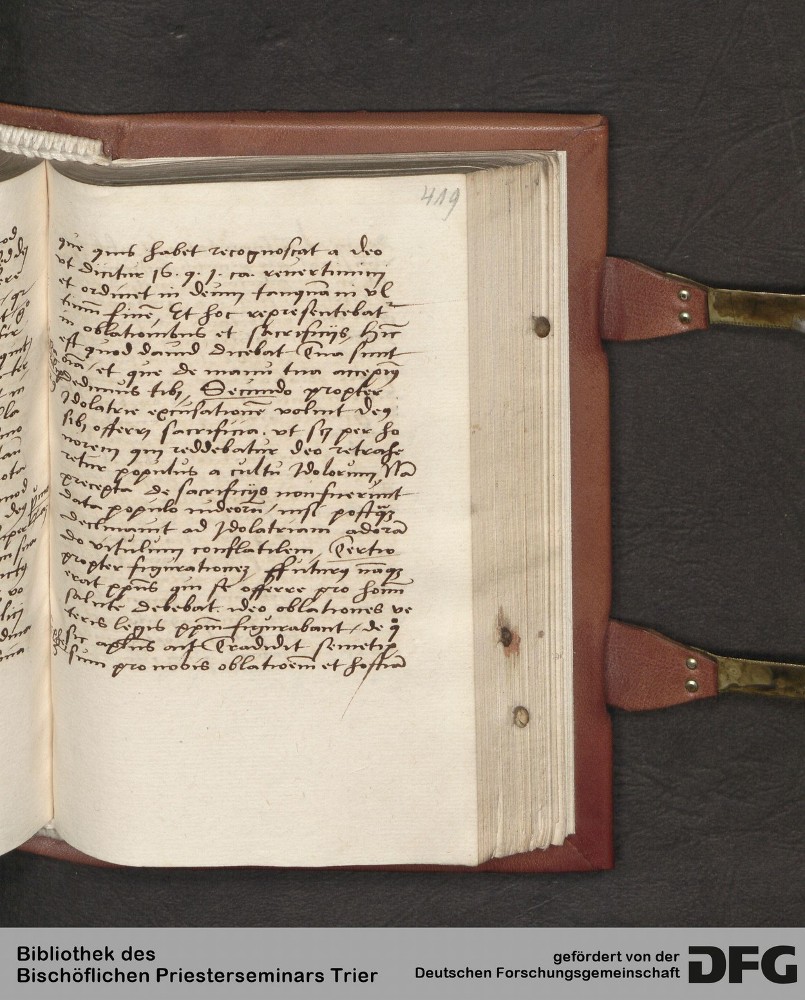 419
que quis habet recognoscat a deo
ut dicitur 16. q. 1. ca. revertimini
et ordinet in deum tanquam in ul
timũ finẽ, Et hoc representebat
in oblationibus et sacrificijs, hĩc
est quod dauid dicebat Tua sunt
oĩa, et que de manu tua accepim9
dedimus tibi, Secundo propter
Idolatrie excusationẽ voluit de9
sibi offerri sacrificia. ut sic per ho
norem qui reddebatur deo retrahe
retur populus a cultu Idolorum, Nã
precepta de sacrificijs non fuerunt
data populo iudeorũ, nisi postq̃
declinauit ad Idolatriam adorã
do vitulum conflatilem, Tertio
propter figurationẽ futurũ nãq3
erat ppũs qui se offerre pro homĩ
salute debebat. ideo oblationes ve
teris legis ppm̃ figurabant, de q̃
sic apl̃us ait Tradidit semetip
sum pro nobis oblationẽ et hostiã
Bibliothek des
Bischöflichen Priesterseminars Trier
gefördert von der
Deutschen Forschungsgemeinschaft
DFG